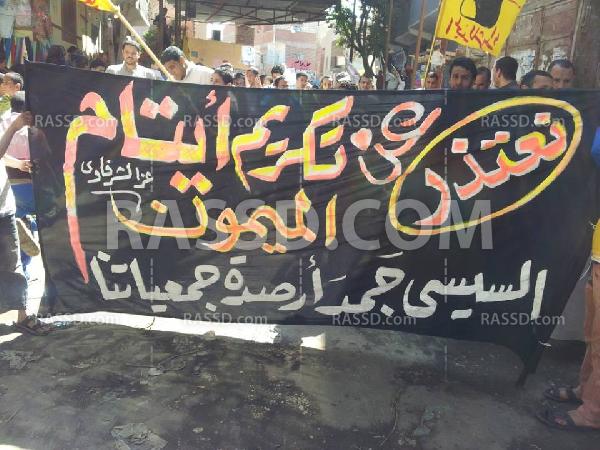 نعتذر عن تكريم أيتام
الميمون
عزالشرقاوى
السيسى جَمدَ أرصدة جمعياتنا
RASSD.COM
RASSD.com
RASSD.com
RASSD.com
RASSD.com
RASSD.com
RASSD.com
RASSD.com
RASSD.com